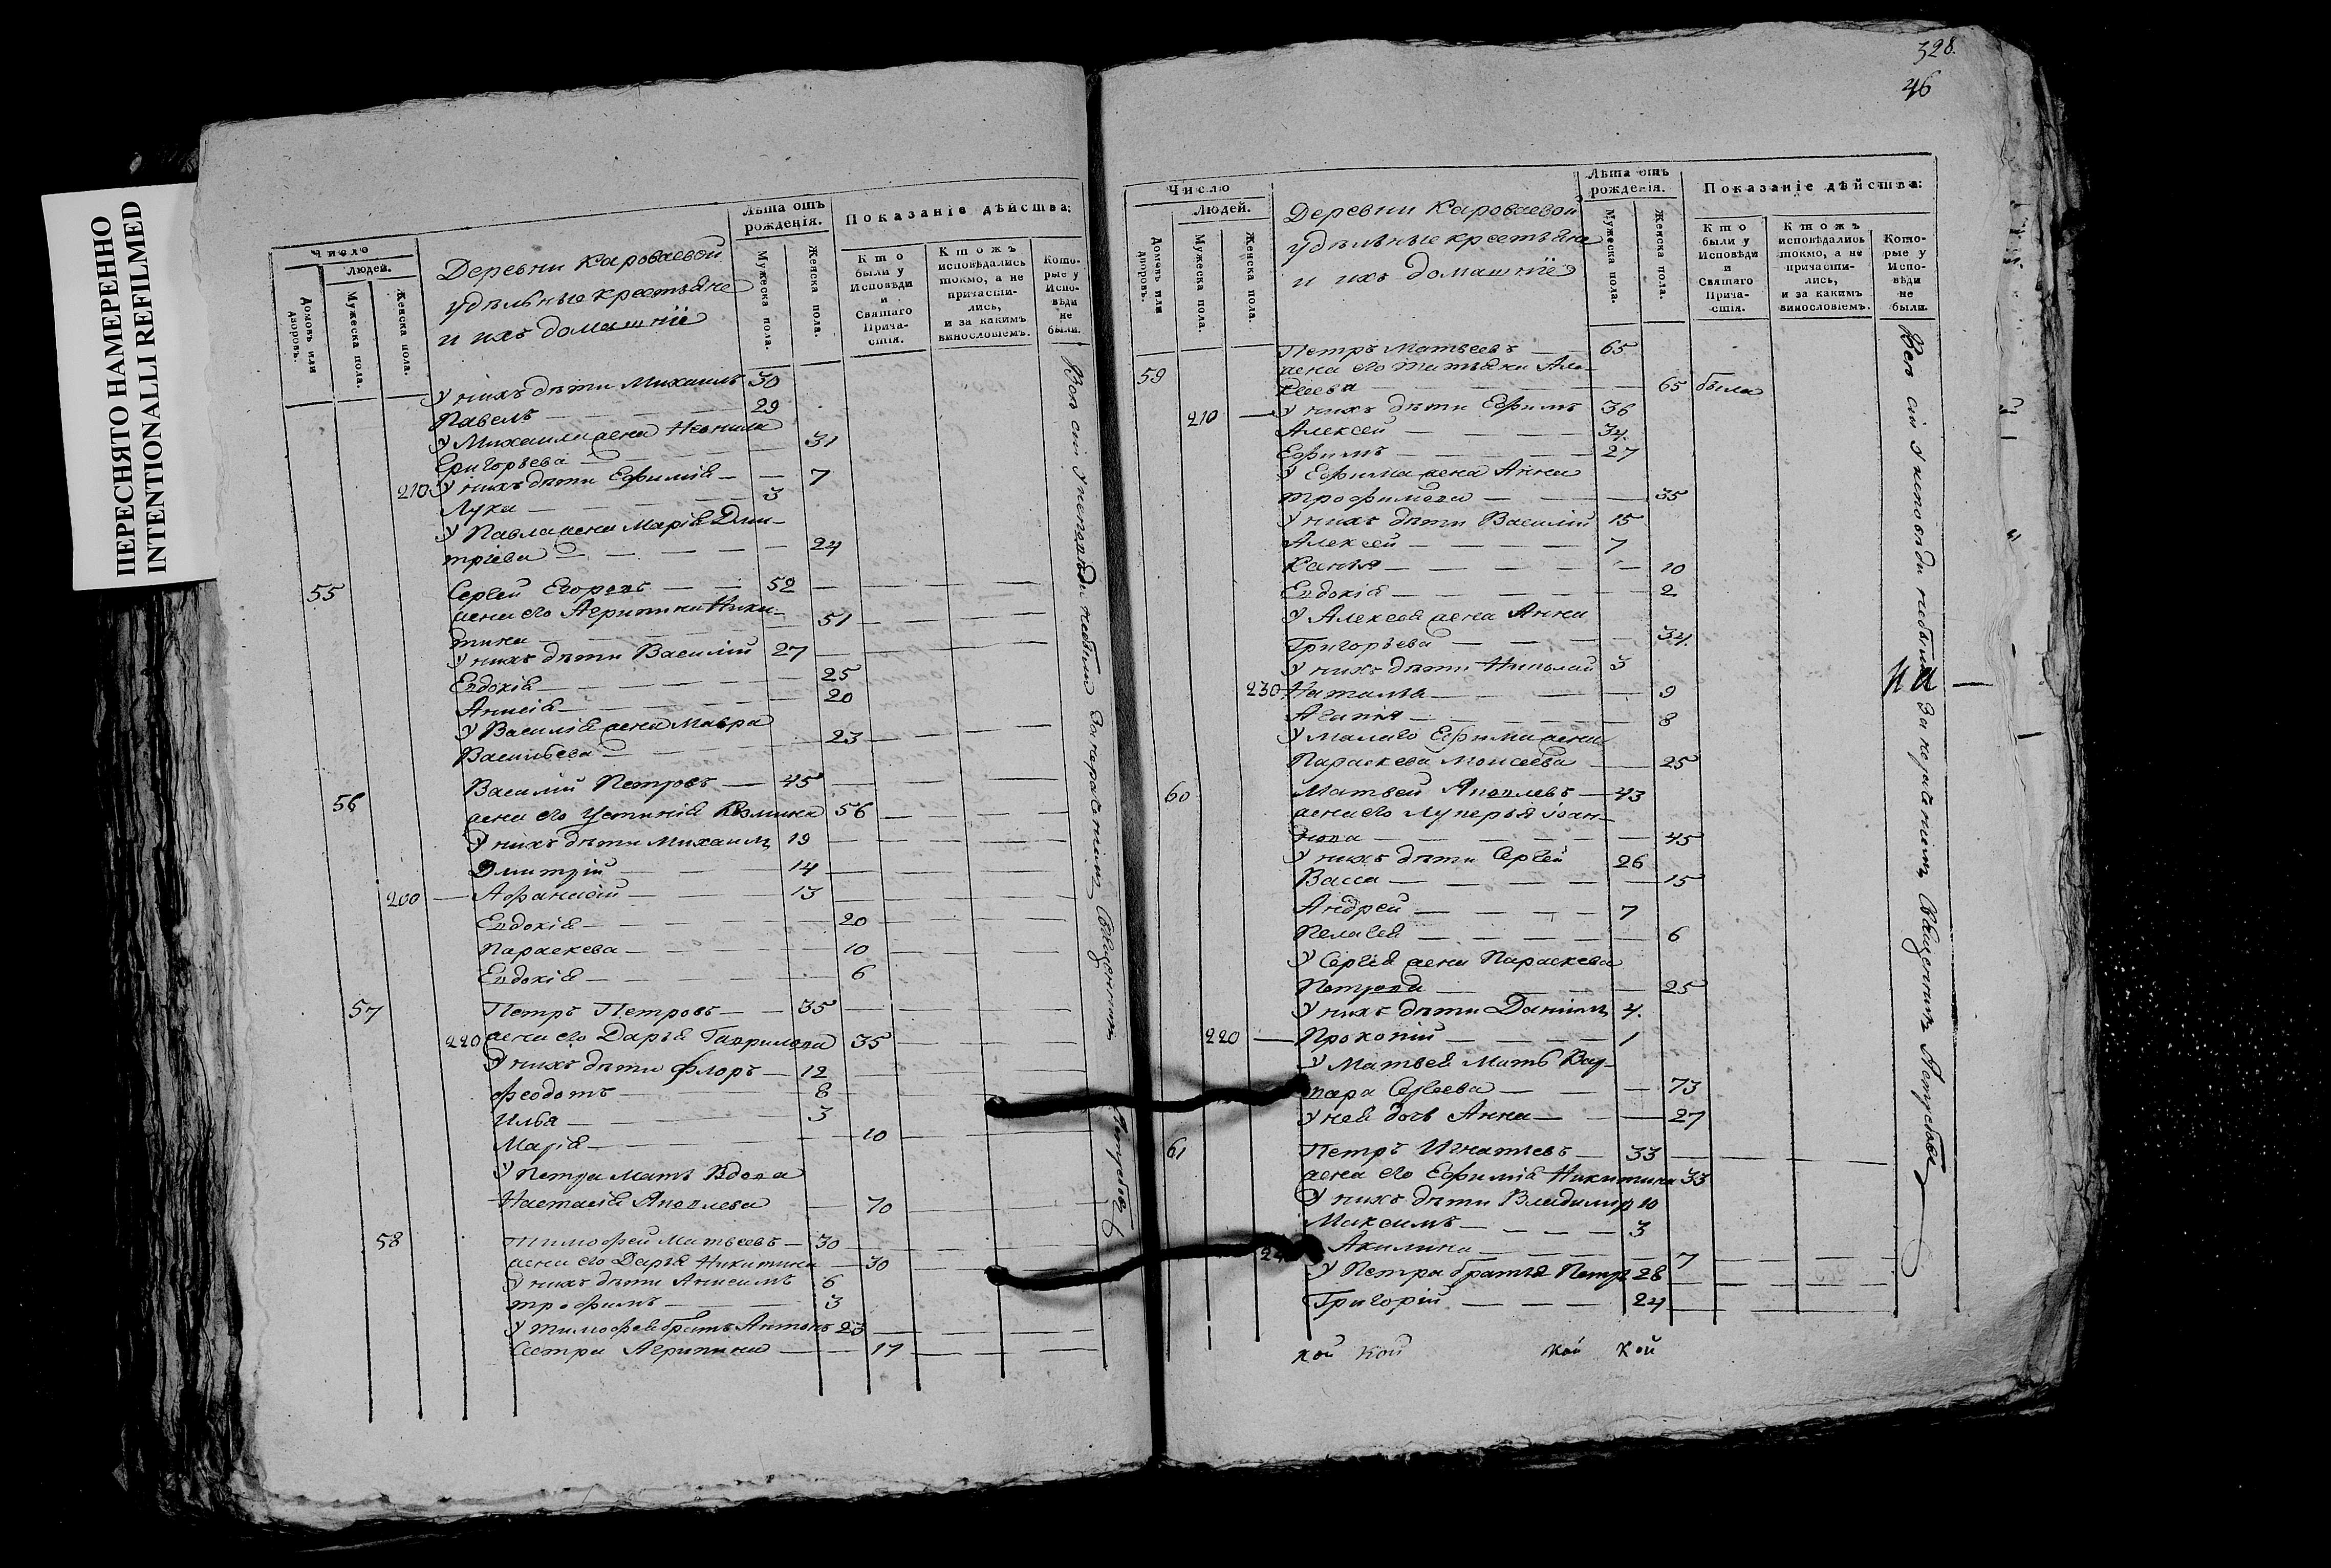 ПЕРЕСНЯТО НАМЕРЕННО
INTENTIONALLI REFILMED
Число
Людей.
Домовъ или дворовъ.
Мужеска пола.
Женска пола.
Деревни Короваевой
удѣльные крестьяне
и ихъ домашнїе
Лѣта отъ рожденїя.
Мужеска пола.
Женска пола.
Показанїе дѣйства:
Кто были у Исповѣди и Святаго Причастїя.
Ктожъ исповѣдались токмо, а не причастились, и за какимъ винословїемъ.
Которые у Исповѣди не были.
У нихъ дѣти Михаилъ 30
Павелъ 29
У Михаила жена Неонила
Григорьева 31
210 У нихъ дѣти Ефимія 7
Лука 3
У Павла жена Марія Дми-
тріева 24
55 Сергей Егоровъ 52
жена его Агрипина Ники-
тина 51
У нихъ дѣти Василій 27
Евдокія 25
Анисія 20
У Василія жена Мавра
Васильева 23
56 Василій Петровъ 45
жена его Устинія Козмина 56
У нихъ дѣти Михаилъ 19
Дмитрій 14
200 Афанасій 13
Евдокія 20
Параскева 10
Евдокія 6
57 Петръ Петровъ 35
220 жена его Дарья Гаврилова 35
У нихъ дѣти Флоръ 12
Феодотъ 8
Илья 3
Марія 10
У Петра мать вдова
Настасія Яковлева 70
58 Тимофей Матвеевъ 30
жена его Дарья Никитина 30
У нихъ дѣти Анисимъ 6
Трофимъ 3
У Тимофея братъ Антонъ 23
Сестра Агрипина 17
Всѣ сіи у исповѣди небыли за нераченіемъ Священникъ
328.
46
Число
Людей.
Домовъ или дворовъ.
Мужеска пола.
Женска пола.
Деревни Короваевой
удѣльные крестьяне
и ихъ домашнїе
Лѣта отъ рожденїя.
Мужеска пола.
Женска пола.
Показанїе дѣйства:
Кто были у Исповѣди и Святаго Причастїя.
Ктожъ исповѣдались токмо, а не причастились, и за какимъ винословїемъ.
Которые у Исповѣди не были.
59 Петръ Матвеевъ 65
жена его Татьяна Але-
ксеева 65 была
210 У нихъ дѣти Ефимъ 36
Алексей 34
Ефимъ 27
У Ефима жена Анна
Трофимова 35
У нихъ дѣти Василій 15
Алексей 7
10
Евдокія 2
У Алексея жена Анна
Григорьева 34
У нихъ дѣти Николай 3
230 Наталья 9
Агапія 8
У малаго Ефима жена
Параскева Моисеева 25
60 Матвей Яковлевъ 43
жена его Лукерья Іоан-
нова 45
У нихъ дѣти Сергей 26
Васса 15
Андрей 7
Пелагея 6
У Сергія жена Параскева
Петрова 25
У нихъ дѣти Даніилъ 4
220 Прокопій 1
У Матвея мать Вар-
вара Сергеева 73
У ней дочь Анна 27
61 Петръ Игнатьевъ 33
жена его Ефимія Никитина 33
У нихъ дѣти Владимир 10
Максимъ 3
Акилина 7
У Петра братья Петр 28
Григорій 24
кой кой кой кой
Всѣ сіи у исповѣди небыли за нераченіемъ Священникъ